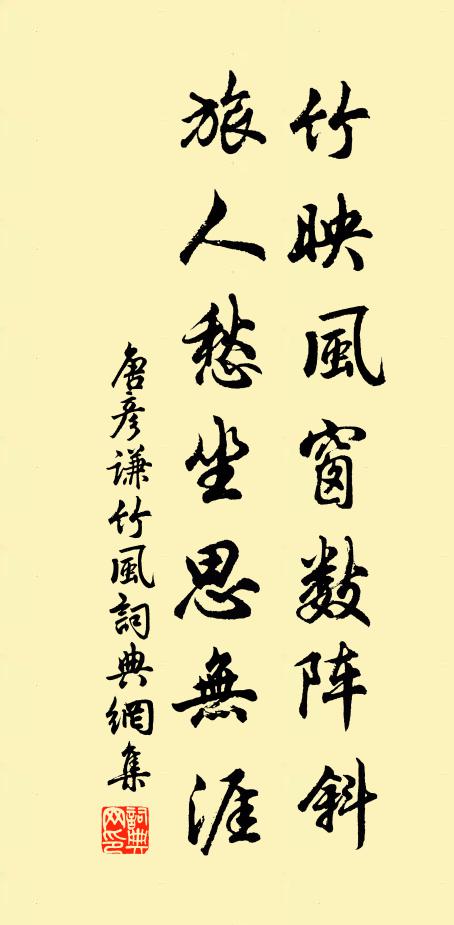 竹映風窗数阵斜
旅人愁坐思無涯
唐彦谦竹風詞典網集
詞典网印